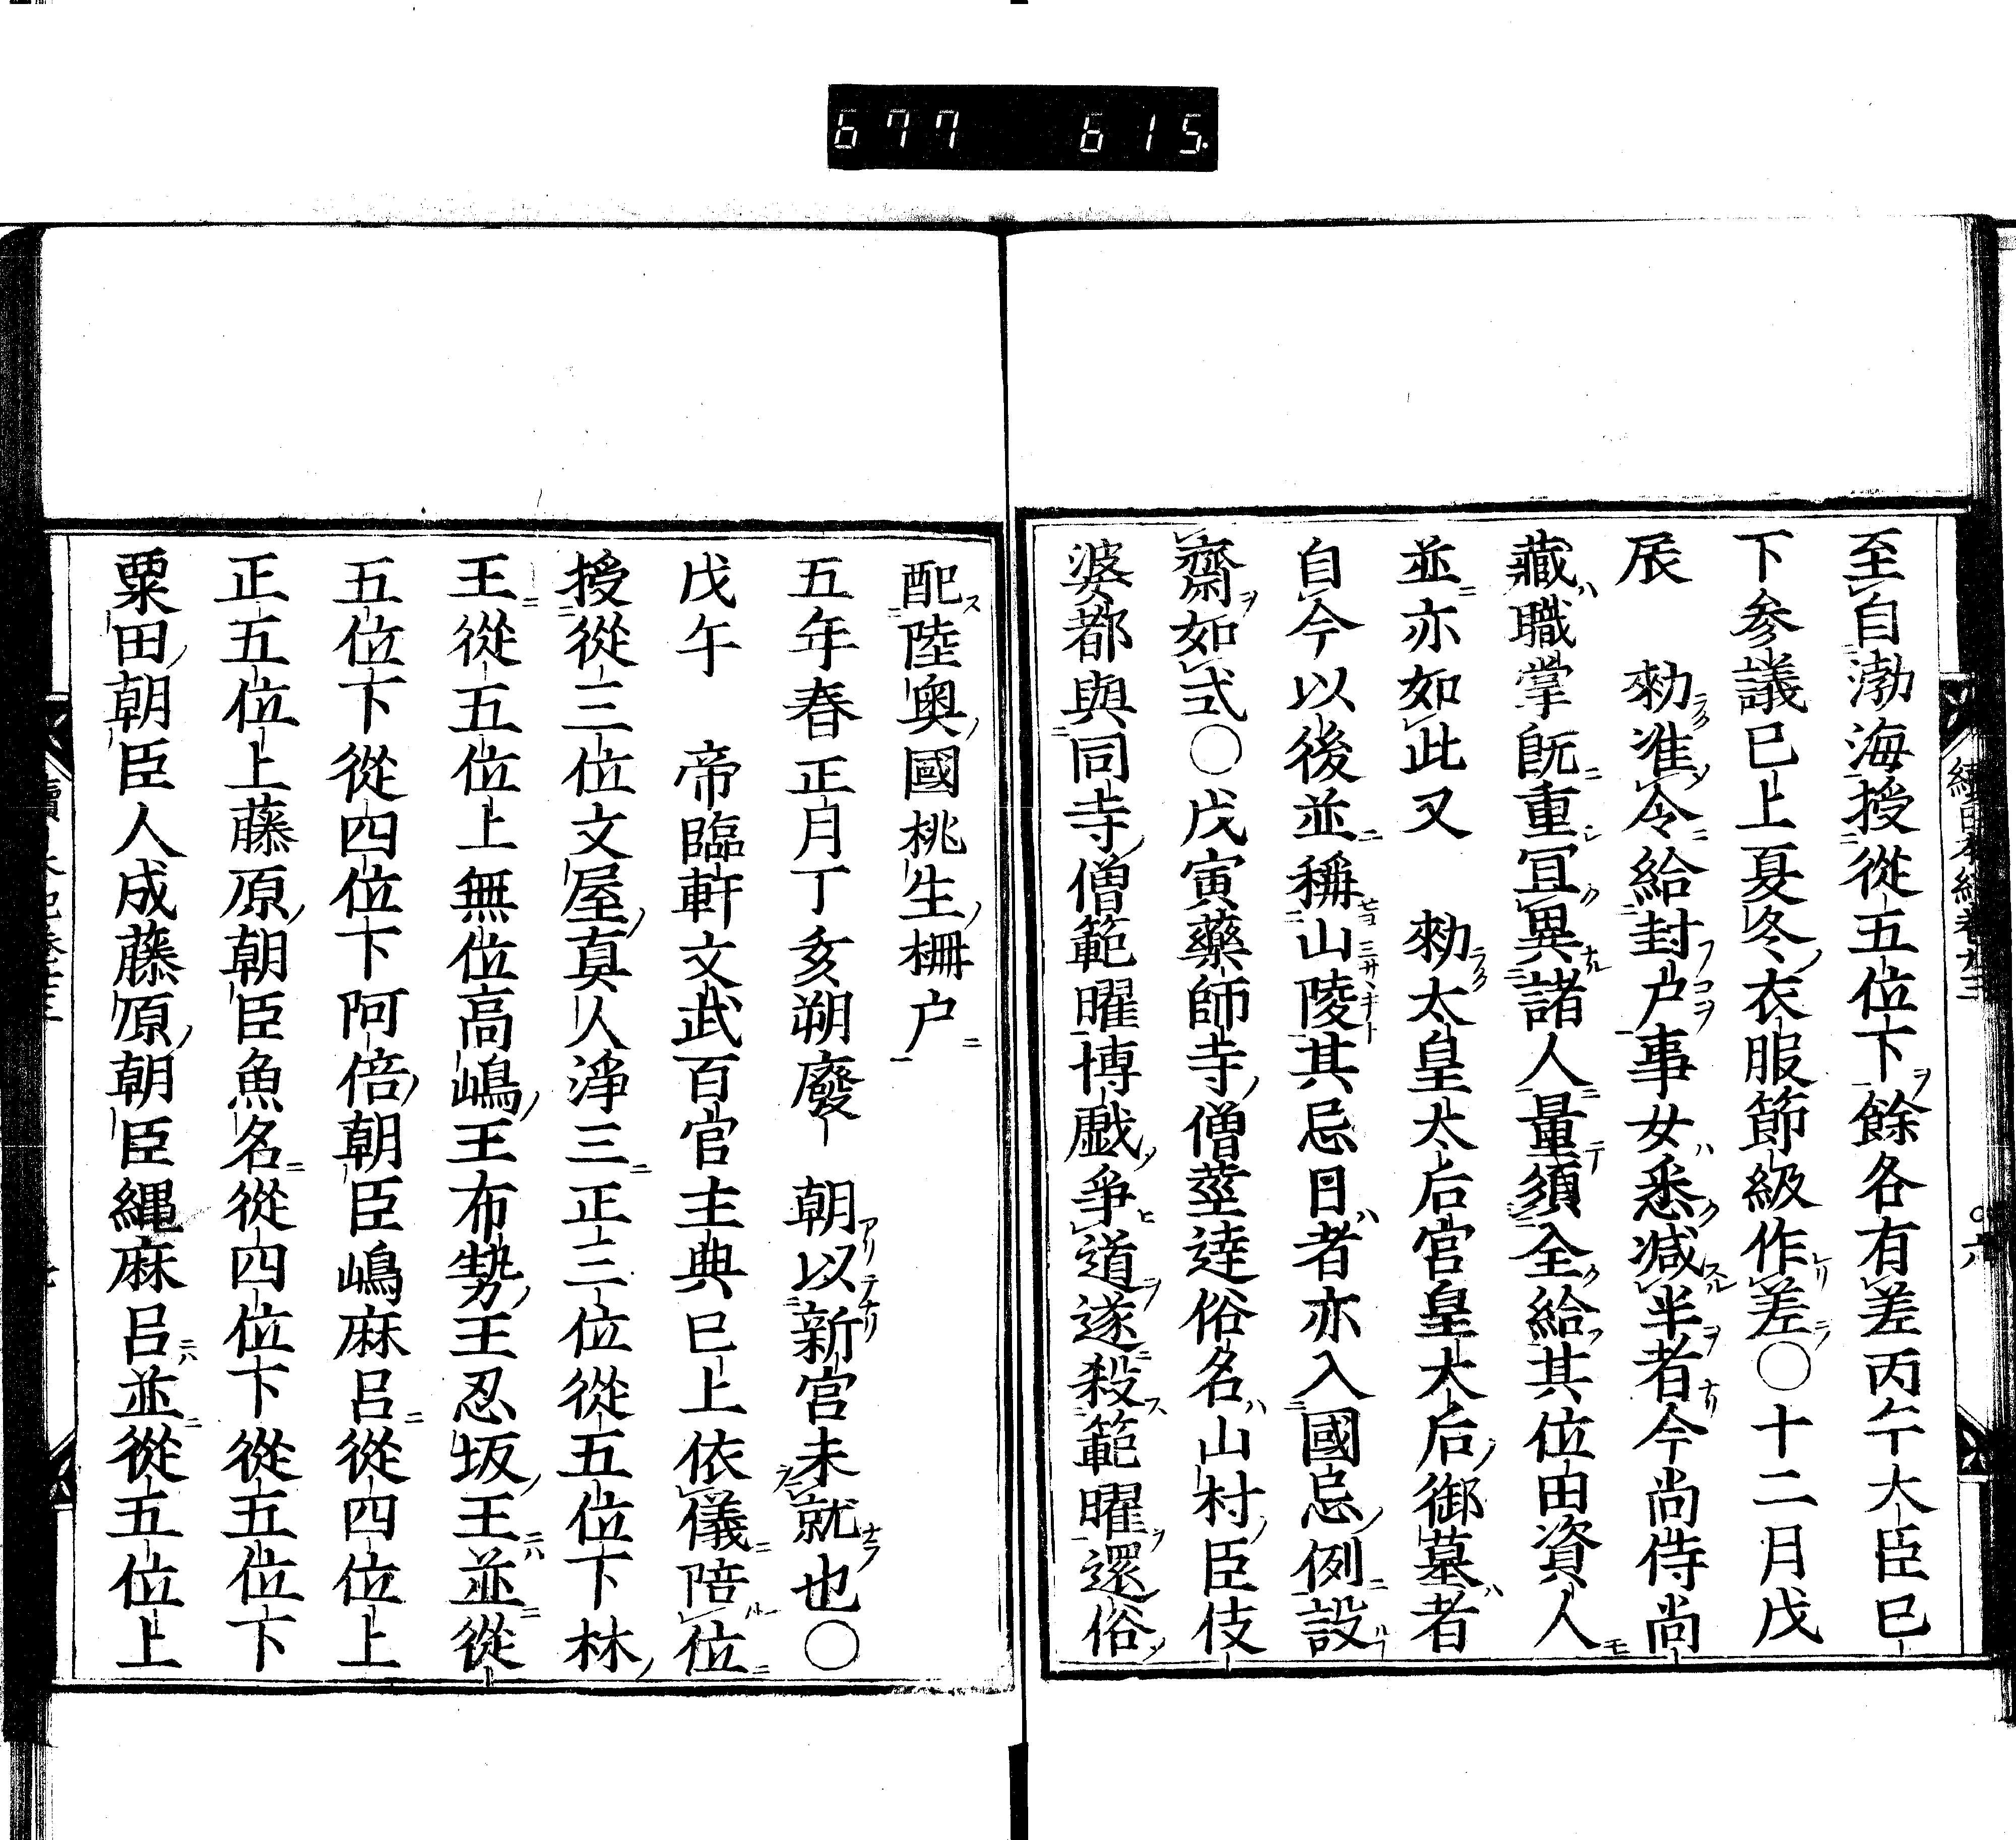 677 615.
至自渤海授從五位下餘各有差丙午大臣巳
下參議已上夏冬衣服節級作差〇十二月戊
辰　勑准令給封戸事女悉减半者今尚侍尚
藏職掌旣重冝異諸人量須全給其位田資人
並亦如此又　勑太皇太后宮皇太后御墓者
自今以後並稱山陵其忌日者亦入國忌例設
齋如式〇戊寅藥師寺僧華達俗名山村臣伎
婆都與同寺僧範曜博戯爭道遂殺範曜還俗
配陸奧國桃生柵戸
五年春正月丁亥朔廢　朝以新宮未就也〇
戊午　帝臨軒文武百官主典已上依儀陪位
授從三位文屋真人淨三正三位從五位下林
王從五位上無位高嶋王布勢王忍坂王並從
五位下從四位下阿倍朝臣嶋麻呂從四位上
正五位上藤原朝臣魚名從四位下從五位下
粟田朝臣人成藤原朝臣縄麻呂並從五位上